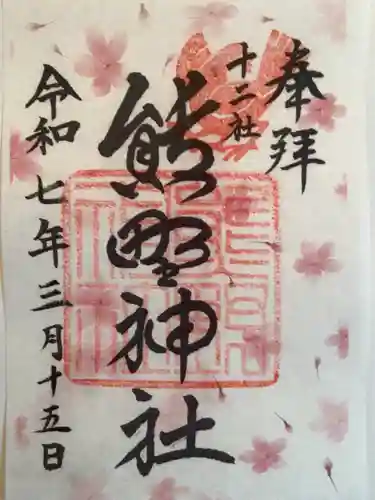 奉拝
十二社
熊野神社
令和七年三月十五日